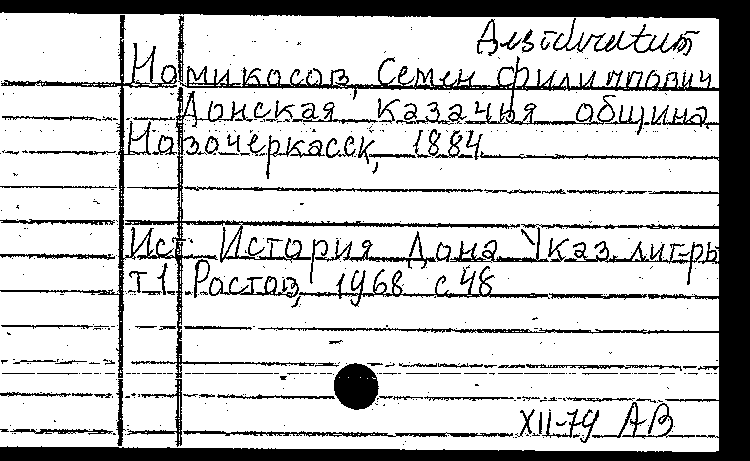 Desiderata
Номикосов, Семен Филиппович
Донская казачья община.
Новочеркасск, 1884.
Ист: История Дона. Указ. лит-ры
т 1 Ростов, 1968 с 48
XII-79 АВ